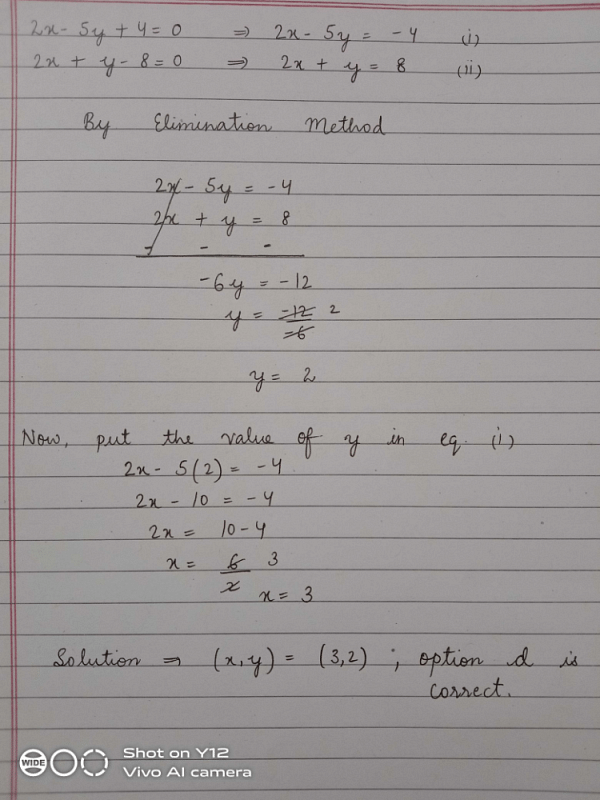 2x - 5y + 4 = 0 ⇒ 2x - 5y = -4 (i)
2x + y - 8 = 0 ⇒ 2x + y = 8 (ii)
By Elimination Method
2x - 5y = -4
2x + y = 8
- - -
-6y = -12
y = -12 2
-6
y = 2
Now, put the value of y in eq. (i)
2x - 5(2) = -4
2x - 10 = -4
2x = 10 - 4
x = 6 3
2
x = 3
Solution ⇒ (x, y) = (3,2) ; option d is
correct.
WIDE
Shot on Y12
Vivo AI camera